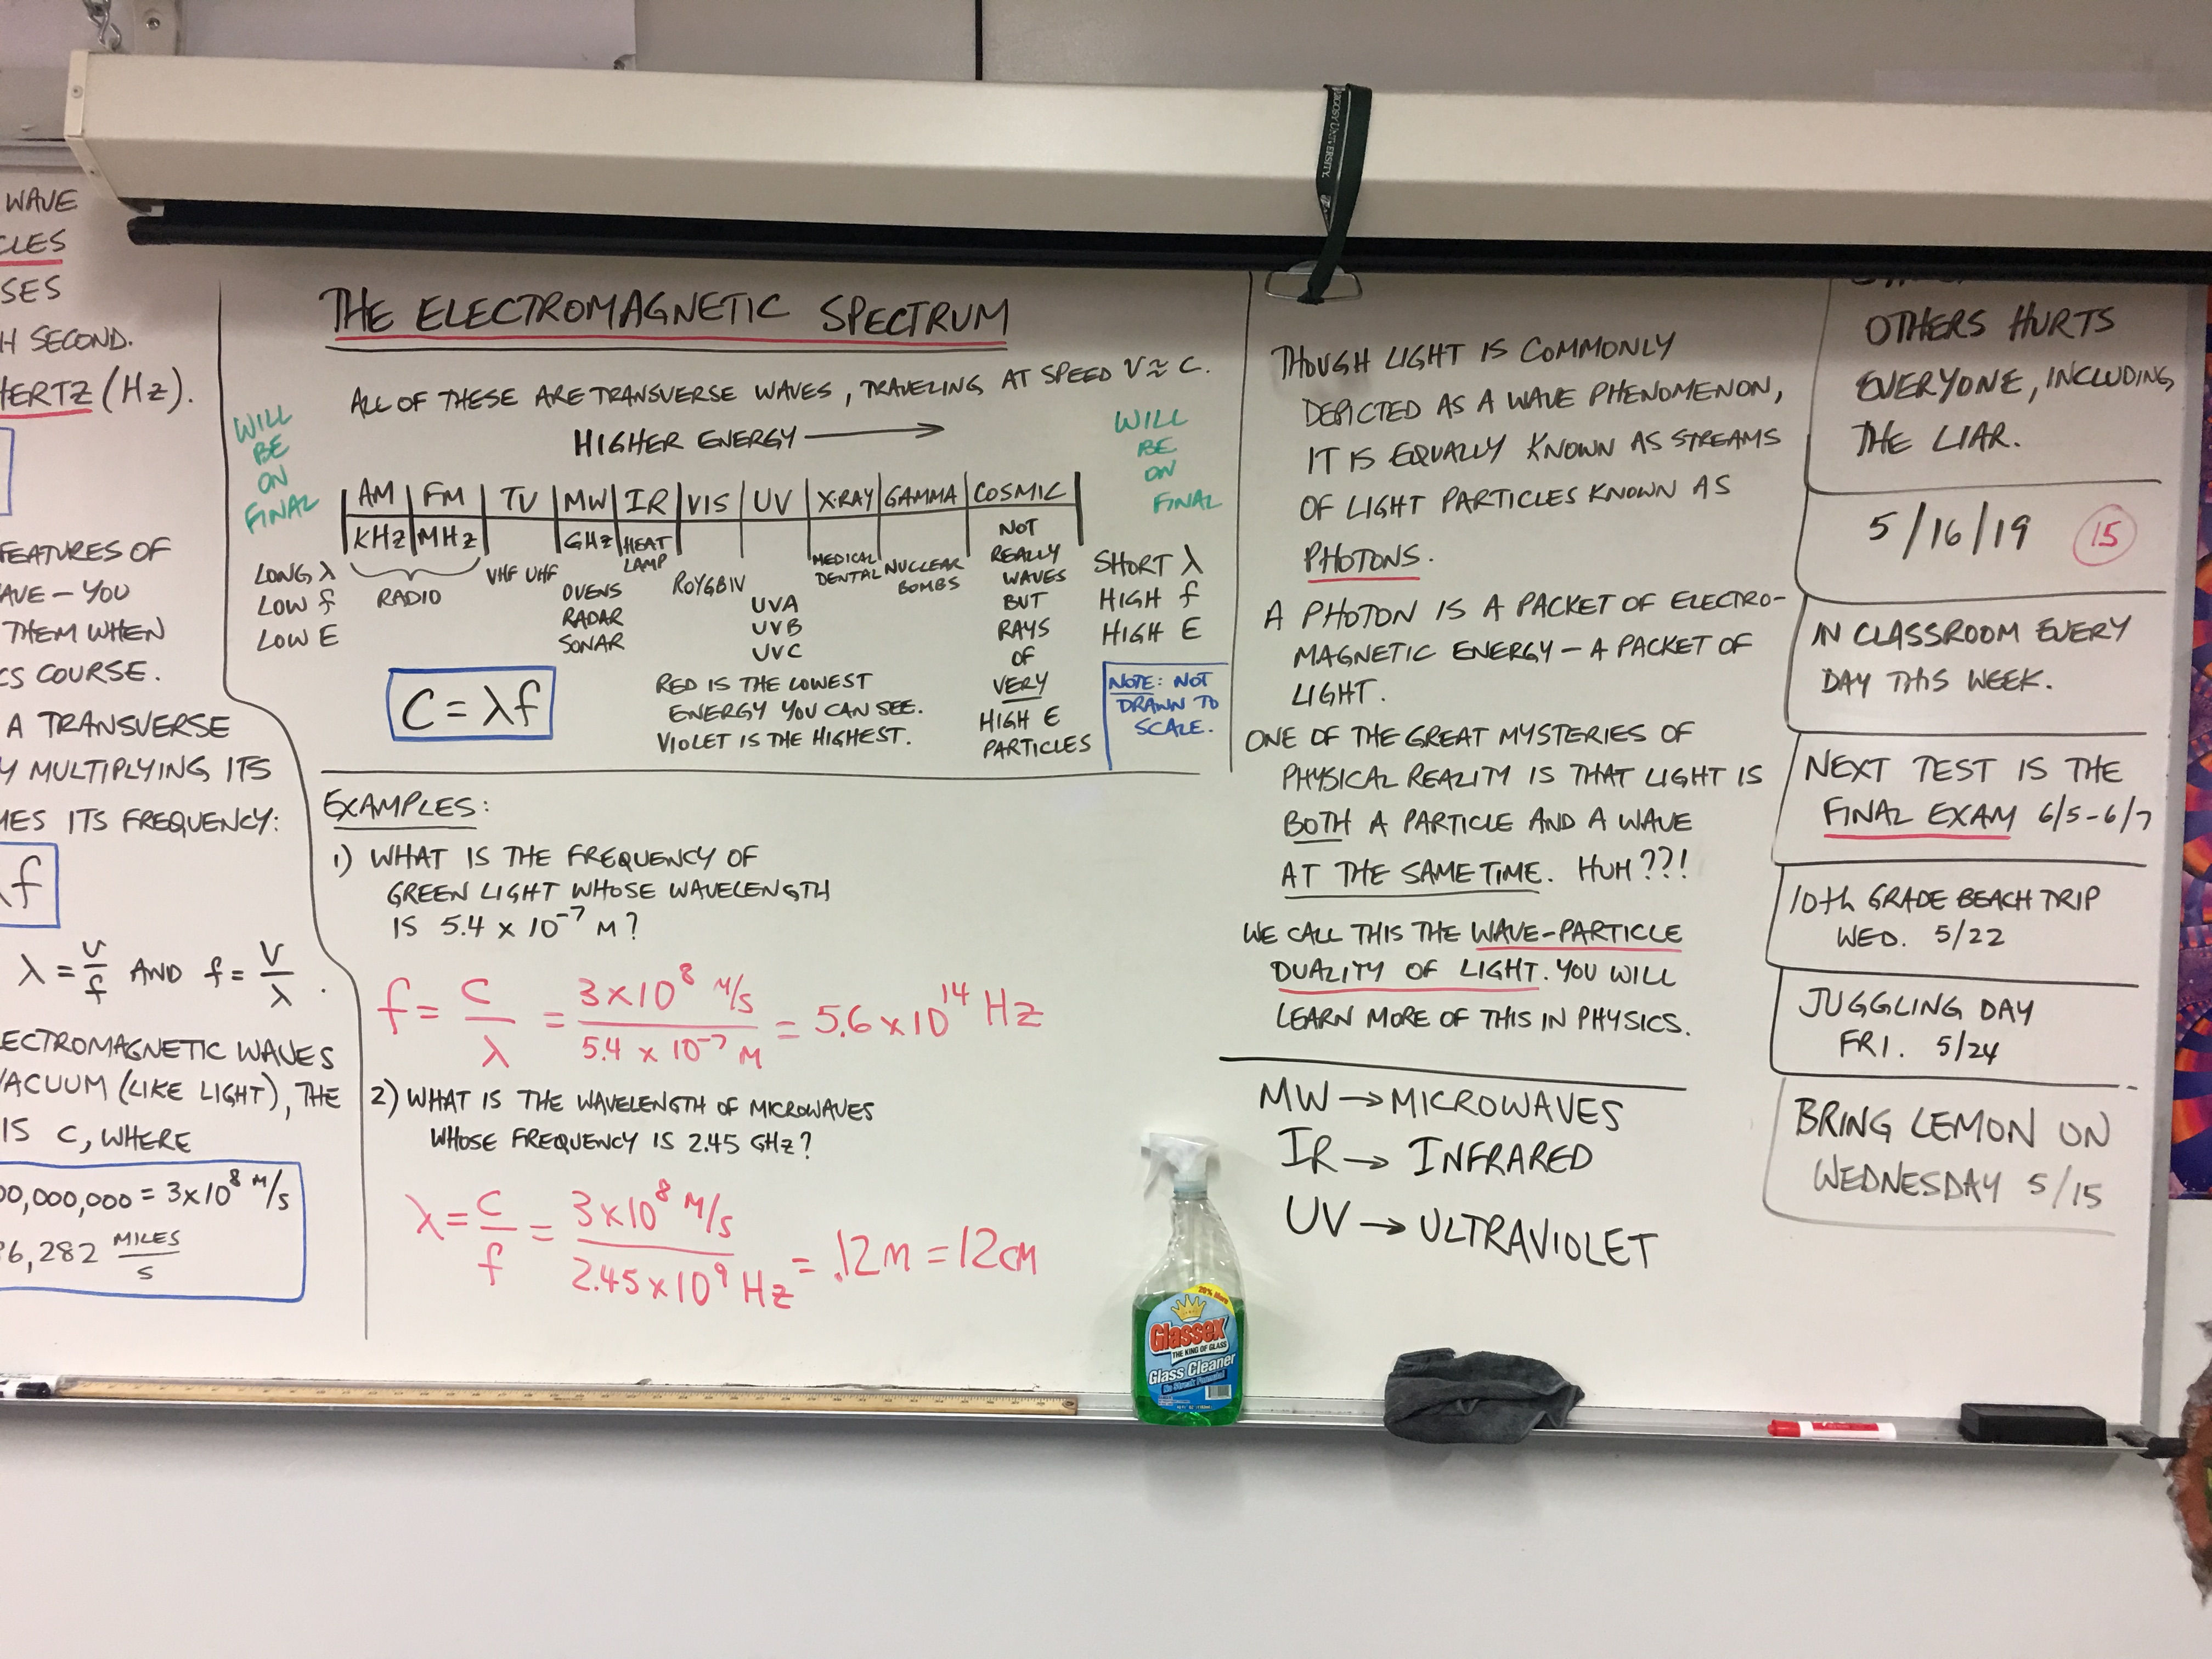 WAVE
CLES
SES
H SECOND.
HERTZ (Hz).
FEATURES OF
AVE — YOU
THEM WHEN
CS COURSE.
A TRANSVERSE
Y MULTIPLYING ITS
MES ITS FREQUENCY:
λf
λ = v/f AND f = v/λ.
ECTROMAGNETIC WAVES
VACUUM (LIKE LIGHT), THE
IS C, WHERE
00,000,000 = 3x10⁸ M/S
86,282 MILES/S
THE ELECTROMAGNETIC SPECTRUM
ALL OF THESE ARE TRANSVERSE WAVES, TRAVELING AT SPEED V ≈ C.
HIGHER ENERGY →
WILL
BE
ON
FINAL
WILL
BE
ON
FINAL
AM FM TV MW IR VIS UV X-RAY GAMMA COSMIC
KHz MHz GHz HEAT
LAMP
RADIO
VHF UHF
OVENS
RADAR
SONAR
ROYGBIV
UVA
UVB
UVC
MEDICAL
DENTAL
NUCLEAR
BOMBS
NOT
REALLY
WAVES
BUT
RAYS
OF
VERY
HIGH E
PARTICLES
LONG λ
LOW f
LOW E
SHORT λ
HIGH f
HIGH E
C = λf
RED IS THE LOWEST
ENERGY YOU CAN SEE.
VIOLET IS THE HIGHEST.
NOTE: NOT
DRAWN TO
SCALE.
EXAMPLES:
1) WHAT IS THE FREQUENCY OF
GREEN LIGHT WHOSE WAVELENGTH
IS 5.4 x 10⁻⁷ M?
f = C/λ = 3x10⁸ M/S / 5.4 x 10⁻⁷ M = 5.6 x 10¹⁴ Hz
2) WHAT IS THE WAVELENGTH OF MICROWAVES
WHOSE FREQUENCY IS 2.45 GHz?
λ = C/f = 3x10⁸ M/S / 2.45x10⁹ Hz = .12M = 12cM
THOUGH LIGHT IS COMMONLY
DEPICTED AS A WAVE PHENOMENON,
IT IS EQUALLY KNOWN AS STREAMS
OF LIGHT PARTICLES KNOWN AS
PHOTONS.
A PHOTON IS A PACKET OF ELECTRO-
MAGNETIC ENERGY — A PACKET OF
LIGHT.
ONE OF THE GREAT MYSTERIES OF
PHYSICAL REALITY IS THAT LIGHT IS
BOTH A PARTICLE AND A WAVE
AT THE SAME TIME. HUH??!
WE CALL THIS THE WAVE-PARTICLE
DUALITY OF LIGHT. YOU WILL
LEARN MORE OF THIS IN PHYSICS.
MW → MICROWAVES
IR → INFRARED
UV → ULTRAVIOLET
OTHERS HURTS
EVERYONE, INCLUDING
THE LIAR.
5/16/19 15
IN CLASSROOM EVERY
DAY THIS WEEK.
NEXT TEST IS THE
FINAL EXAM 6/5-6/7
10th GRADE BEACH TRIP
WED. 5/22
JUGGLING DAY
FRI. 5/24
BRING LEMON ON
WEDNESDAY 5/15
ARGOSY UNIVERSITY.
20% More
Glassex
THE KING OF GLASS
Glass Cleaner
No Streak Formula!